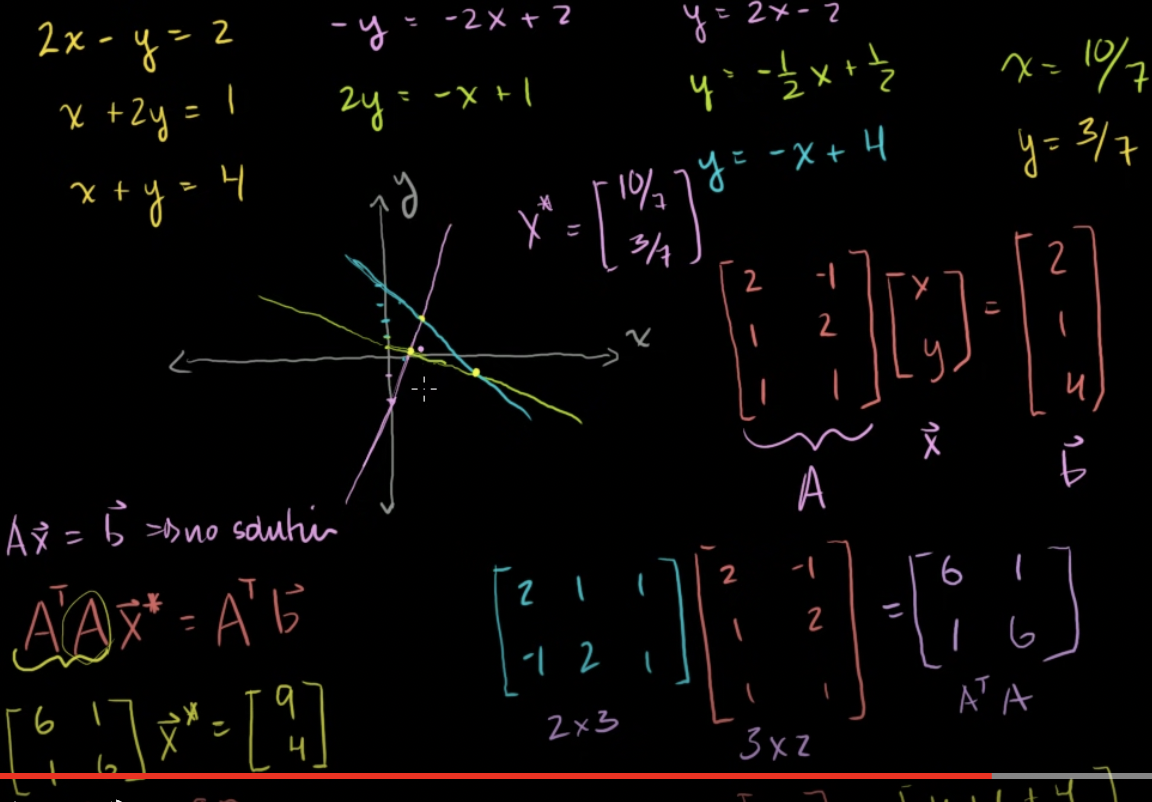 2x - y = 2
x + 2y = 1
x + y = 4
-y = -2x + 2
2y = -x + 1
y = 2x - 2
y = -1/2 x + 1/2
y = -x + 4
x = 10/7
y = 3/7
y
x
x* = [10/7
3/7]
[2 -1
1 2
1 1] [x
y] = [2
1
4]
A x⃗ b⃗
Ax⃗ = b⃗ ⇒ no solutin
AᵀAx⃗* = Aᵀb⃗
[6 1
1 6] x⃗* = [9
4]
[2 1 1
-1 2 1] [2 -1
1 2
1 1] = [6 1
1 6]
2x3 3x2 AᵀA